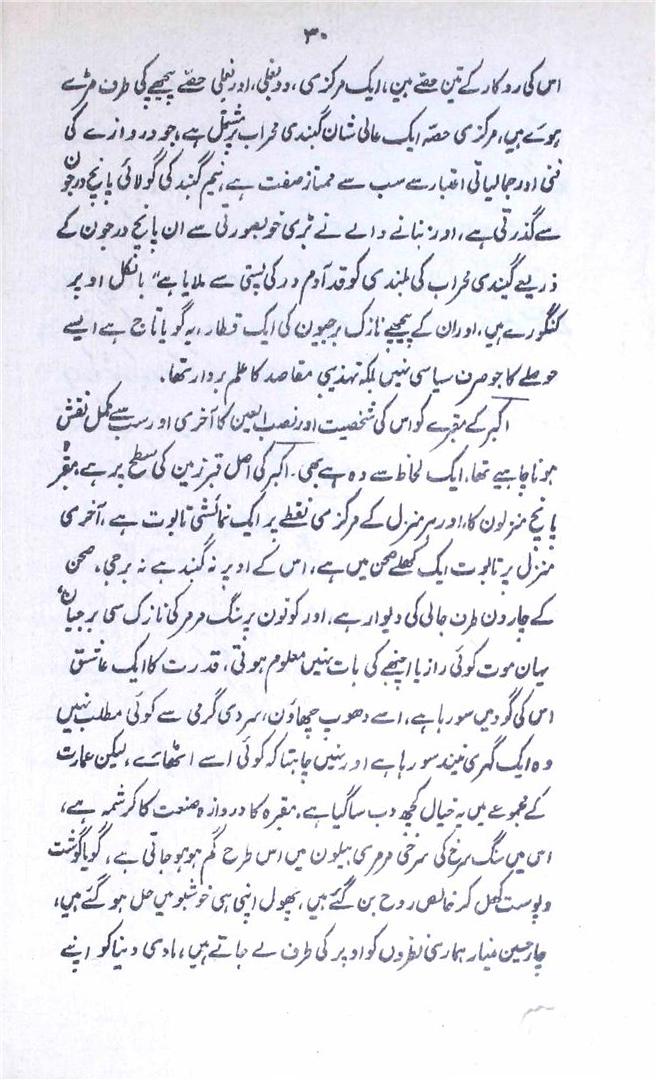 ۳۰
اس کی روکار کے تین حصّے ہیں، ایک مرکزی، دو بغلی، اور بغلی حصّے پیچھے کی طرف مڑے
ہوئے ہیں، مرکزی حصّہ ایک عالی شان گنبدی محراب پر مشتمل ہے، جو دروازے کی
فنی اور جمالیاتی اعتبار سے سب سے ممتاز صفت ہے، نیم گنبد کی گولائی پانچ درجون
سے گذرتی ہے، اور بنانے والے نے بڑی خوبصورتی سے ان پانچ درجون کے
ذریعے گنبدی محراب کی بلندی کو قد آدم در کی پستی سے ملایا ہے" بالکل اوپر
کنگورے ہیں، اور ان کے پیچھے نازک برجیون کی ایک قطار، یہ گویا تاج ہے ایسے
حوصلے کا جو صرف سیاسی نہیں بلکہ تہذیبی مقاصد کا علم بردار تھا۔
اکبر کے مقبرے کو اس کی شخصیت اور نصب العین کا آخری اور سب سے مکمل نقش
ہونا چاہیے تھا۔ ایک لحاظ سے وہ ہے بھی۔ اکبر کی اصل قبر زمین کی سطح پر ہے، مقبرہ
پانچ منزلون کا، اور ہر منزل کے مرکزی نقطے پر ایک نمائشی تابوت ہے، آخری
منزل پر تابوت ایک کھلے صحن میں ہے، اس کے اوپر نہ گنبد ہے نہ برجی۔ صحن
کے چارون طرف جالی کی دیوار ہے، اور کونون پر سنگ مرمر کی نازک سی برجیان،
یہان موت کوئی راز یا اچنبھے کی بات نہیں معلوم ہوتی، قدرت کا ایک عاشق
اس کی گود میں سو رہا ہے، اسے دھوپ چھاؤن، سردی گرمی سے کوئی مطلب نہیں
وہ ایک گہری نیند سو رہا ہے اور نہیں چاہتا کہ کوئی اسے اٹھائے، لیکن عمارت
کے مجموعے میں یہ خیال کچھ دب سا گیا ہے، مقبرہ کا دروازہ صنعت کا کرشمہ ہے،
اس میں سنگ سرخ کی سرخی مرمری بیلون میں اس طرح گم ہو ہو جاتی ہے، گویا گوشت
و پوست گھل کر خالص روح بن گئے ہیں، پھول اپنی ہی خوشبو میں حل ہو گئے ہیں،
چار حسین مینار ہماری نظروں کو اوپر کی طرف لے جاتے ہیں، مادی دنیا کو اپنے